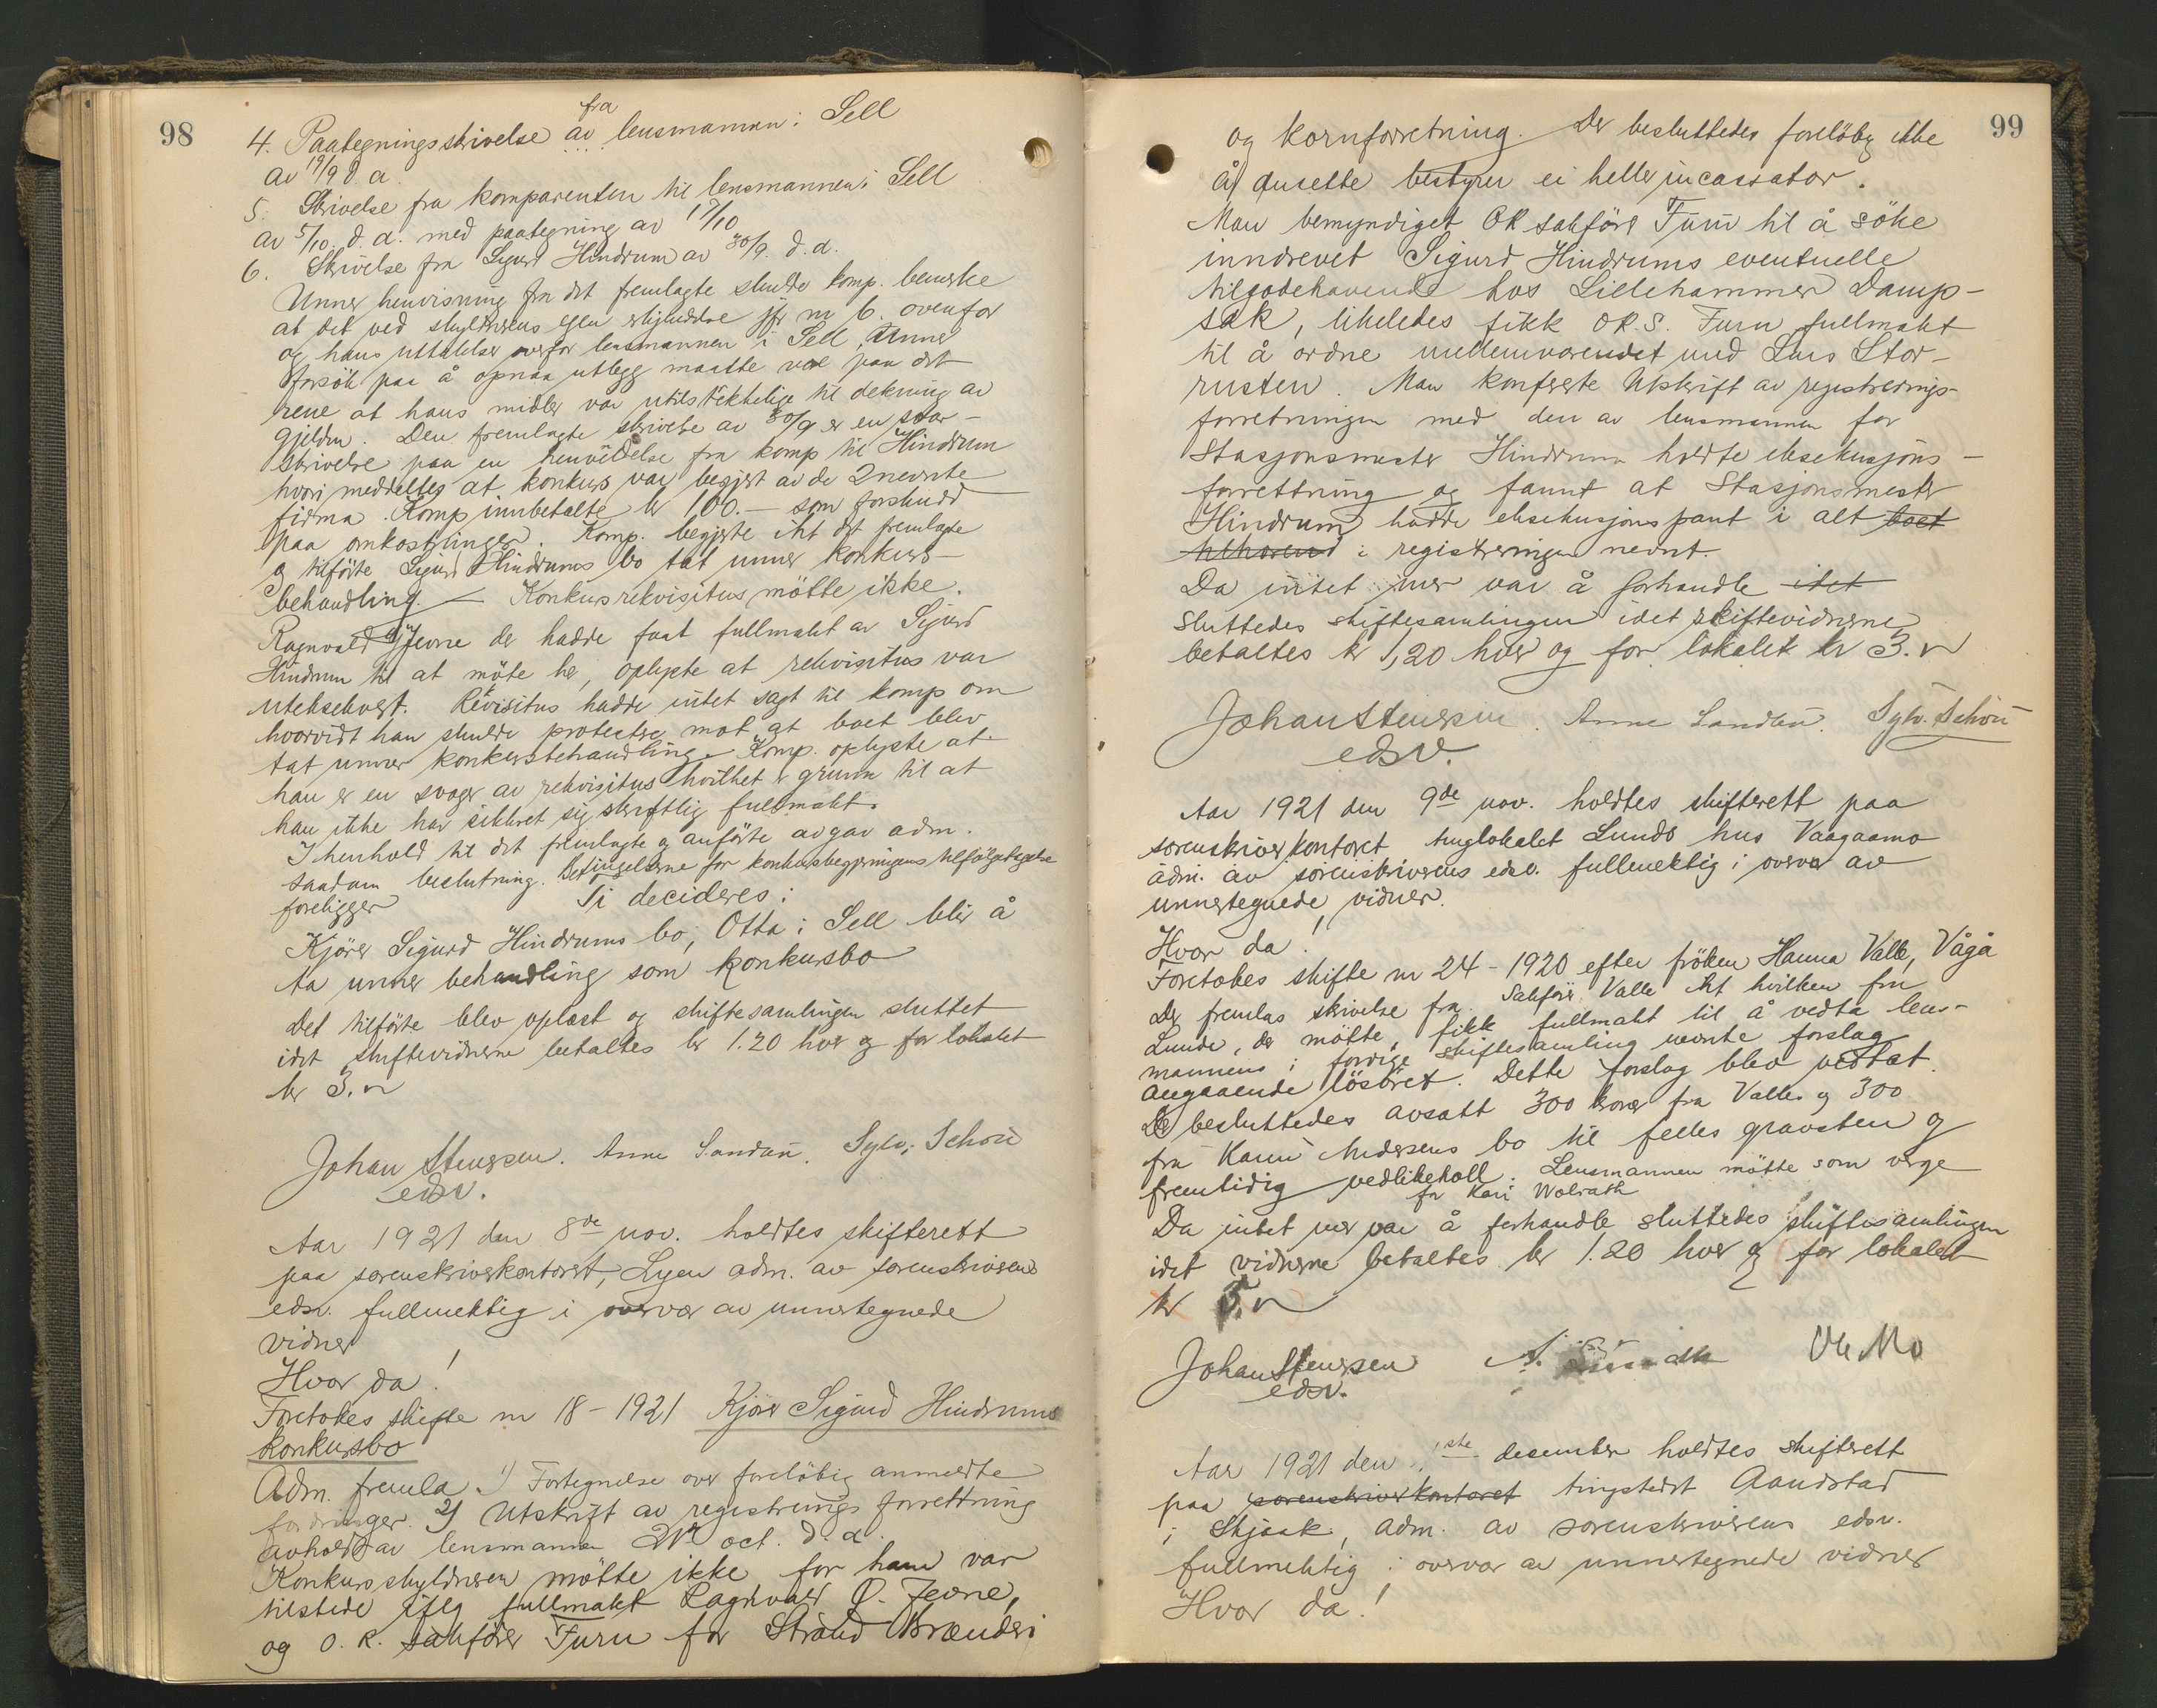 98
4. Paategningsskrivelse av fra lensmannen i Sell
av 19/9 d. a.
5. Skrivelse fra komparenten til lensmannen i Sell
av 5/10. d. a. med paategning av 17/10
6. Skrivelse fra Sigurd Hindrum av 30/9. d. a.
Unner henvisning fra det fremlagte skulde komp. bemerke
at det ved skyldnerens egen jfr nr 6. ovenfor
og hans uttalelse overfor lensmannen i Sell, unner
forsök paa å opnaa utlegg maatte være paa det
rene at hans midler var utilstrekkelige til dekning av
gjelden. Den fremlagte skrivelse av 30/9 er en svar-
skrivelse paa en henvendelse fra komp til Hindrum
hvori meddeltes at konkurs var begjert av de 2 nevnte
firma. Komp innbetalte kr 100.— som forskudd
paa omkostninger. Komp. begjerte iht det fremlagte
og tilförte Sigurd Hindrums bo tat unner konkurs-
behandling. — Konkursrekvisitus mötte ikke.
Ragnvald Jevne der hadde faat fullmakt av Sigurd
Hindrum til at möte her, oplyste at rekvisitus var
utekskvert. Revisitus hadde intet sagt til komp om
hvorvidt han skulde protestere mot at boet blev
tat unner konkursbehandling. Komp. oplyste at
han er en svoger av rekvisitus hvilket er grunn til at
han ikke har sikkret sig skriftlig fullmakt.
I henhold til det fremlagte og anförte avgav adm.
saadan beslutning. Betingelserne for konkursbegjeringens tilfölgetagelse
foreligger
Ti decideres:
Kjörer Sigurd Hindrums bo, Otta i Sell blir å
ta unner behandling som konkursbo
Det tilförte blev oplæst og skiftesamlingen sluttet
idet skiftevidnerne betaltes kr 1.20 hver og for lokalet
kr 3.
Johan Stenersen. Anne Sandun. Sylv. Schou
edsv.
Aar 1921 den 8de nov. holdtes skifterett
paa sorenskriverkontoret, Lyen adm. av sorenskriverens
edsv. fullmektig i overvær av unnertegnede
vidner
Hvor da!
Foretokes skifte nr 18 - 1921 Kjörer Sigurd Hindrums
konkursbo
Adm. fremla 1) Fortegnelse over forelöbig anmeldte
fordringer. 2) Utskrift av registrerings forrettning
avholdt av lensmannen oct. d. a.
Konkursskyldneren mötte ikke for ham var
tilstede iflg fullmakt Ragnvald O. Jevne,
og O. R. sakförer Furu for Strand Brænderi
99
og kornforretning. Der besluttedes forelöbig ikke
å ansette bestyrer ei heller incassator.
Man bemyndiget OR sakförer Furu til å söke
inndrevet Sigurd Hindrums eventuelle
tilgodehavende hos Lillehammer Damp-
sak, likeledes fikk O.R.S. Furu fullmakt
til å ordne mellemværendet med Lars Stor-
rusten. Man konfererte utskrift av registrerings-
forretningen med den av lensmannen for
Stasjonsmester Hindrum holdte eksekusjons-
forrettning og fannt at Stasjonsmester
Hindrum hadde eksekusjonspant i alt boet
tilhörend i registreringen nevnt.
Da intet mer var å forhandle idet
sluttedes skiftesamlingen idet skiftevidnerne
betaltes kr 1,20 hver og for lokalet kr 3.
Johan Stenersen. Anne Sandun. Sylv. Schou
edsv.
Aar 1921 den 9de nov. holdtes skifterett paa
sorenskriverkontoret tinglokalet Lunds hus Vaagaamo
adm. av sorenskriverens edsv. fullmektig i overvær av
unnertegnede vidner.
Hvor da!
Foretokes skifte nr 24 - 1920 efter fröken Hanna Valle, Vågå
Der fremlas skrivelse fra Sakförer Valle iht hvilken fru
Lunde, der mötte, fikk fullmakt til å vedta lens-
mannens i forrige skiftesamling nevnte forslag
angaaende lösöret. Dette forslag blev vedtat.
Der besluttedes avsatt 300 kroner fra Valles og 300
fra Karin Andersens bo til felles gravsten og
fremtidig vedlikeholl. Lensmannen mötte som verge
for Kari Wolrath
Da intet mer var å forhandle sluttedes skiftesamlingen
idet vidnerne betaltes kr 1.20 hver og for lokalet
kr 5.
Johan Stenersen Ole Mo
edsv.
Aar 1921 den 1ste desember holdtes skifterett
paa sorenskriverkontoret tingstedet Aandstad
i Skjaak, adm. av sorenskriverens edsv.
fullmektig i overvær av unnertegnede vidner
Hvor da!